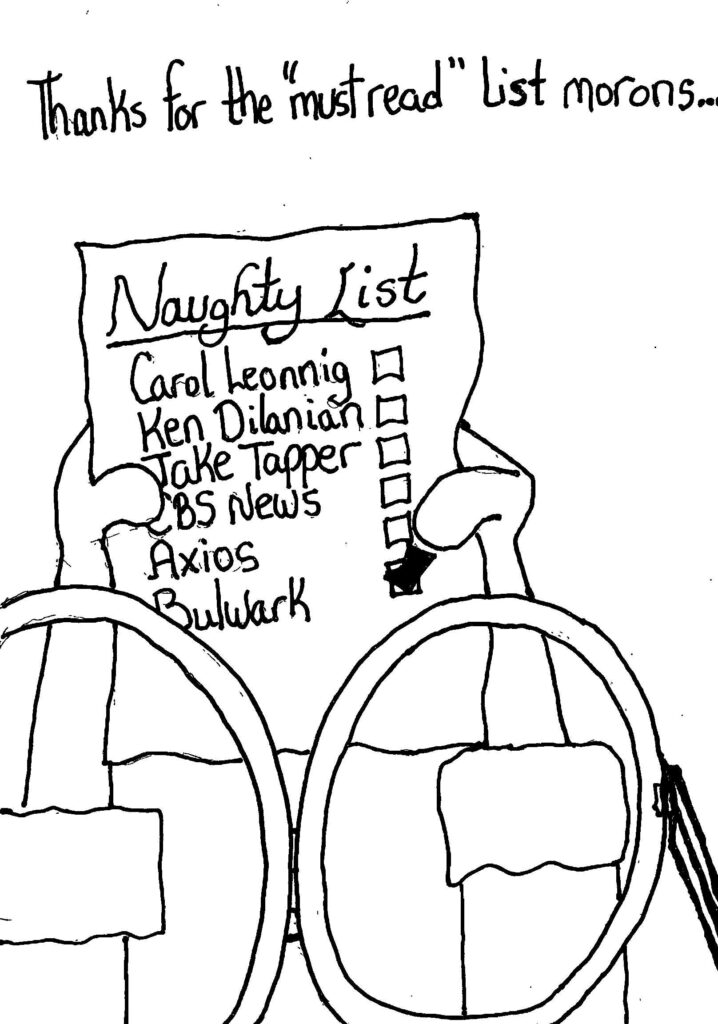 Thanks for the "must read" List morons...
Naughty List
Carol Leonnig
Ken Dilanian
Jake Tapper
CBS News
Axios
Bulwark